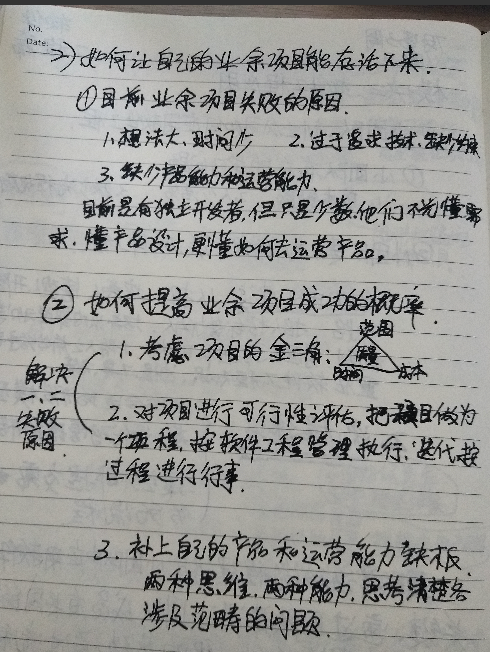 No.
Date.
2) 如何让自己的业余项目能存活下来.
①目前业余项目失败的原因.
1、想法大、时间少 2、过于追求技术、缺少约束
3、缺少产品能力和运营能力.
目前是有独立开发者,但只是少数,他们不光懂需
求、懂产品设计,更懂如何去运营产品。
② 如何提高业余项目成功的概率.
1、考虑项目的金三角:
范围
质量
时间 成本
解决
一、二
失败
原因
2、对项目进行可行性评估,把项目做为
一个工程,按软件工程管理执行,迭代按
过程进行行事.
3、补上自己的产品和运营能力缺板.
两种思维,两种能力,思考清楚各
涉及范畴的问题.